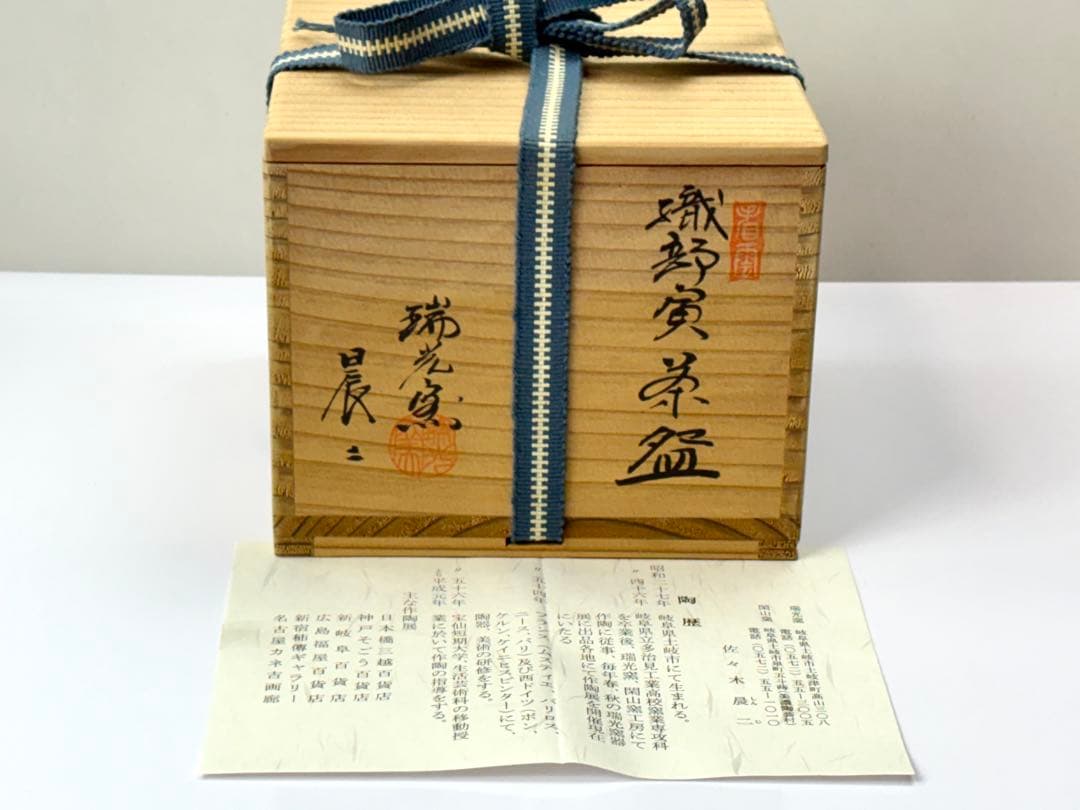 織部寅茶盌
瑞光窯
晨二
瑞光窯 岐阜県土岐市土岐津町高山二〇八
電話〇五七二-五五-三〇〇五
閑山窯 岐阜県土岐市泉町五斗蒔美濃陶芸村
電話〇五七二-五五-一〇一〇
佐々木 晨二
しんじ
陶歴
昭和二十七年 岐阜県土岐市にて生まれる。
〃四十六年 岐阜県立多治見工業高校窯業専攻科
を卒業後、瑞光窯、閑山窯工房にて
作陶に従事、毎年春、秋の瑞光窯器
展に出品各地にて作陶展を開催現在
にいたる
〃五十四年 フランス(ムスティエ、バリロス、
ニース、パリ)及び西ドイツ(ボン、
ケルン、ゲイニヒスビンター)にて、
陶器、美術の研修をする。
〃五十六年 宝仙短期大学、生活芸術科の移動授
より平成元年 業に於いて作陶の指導をする。
主な作陶展
日本橋三越百貨店
神戸そごう百貨店
新岐阜百貨店
広島福屋百貨店
新宿柿傳ギャラリー
名古屋カネ吉画廊